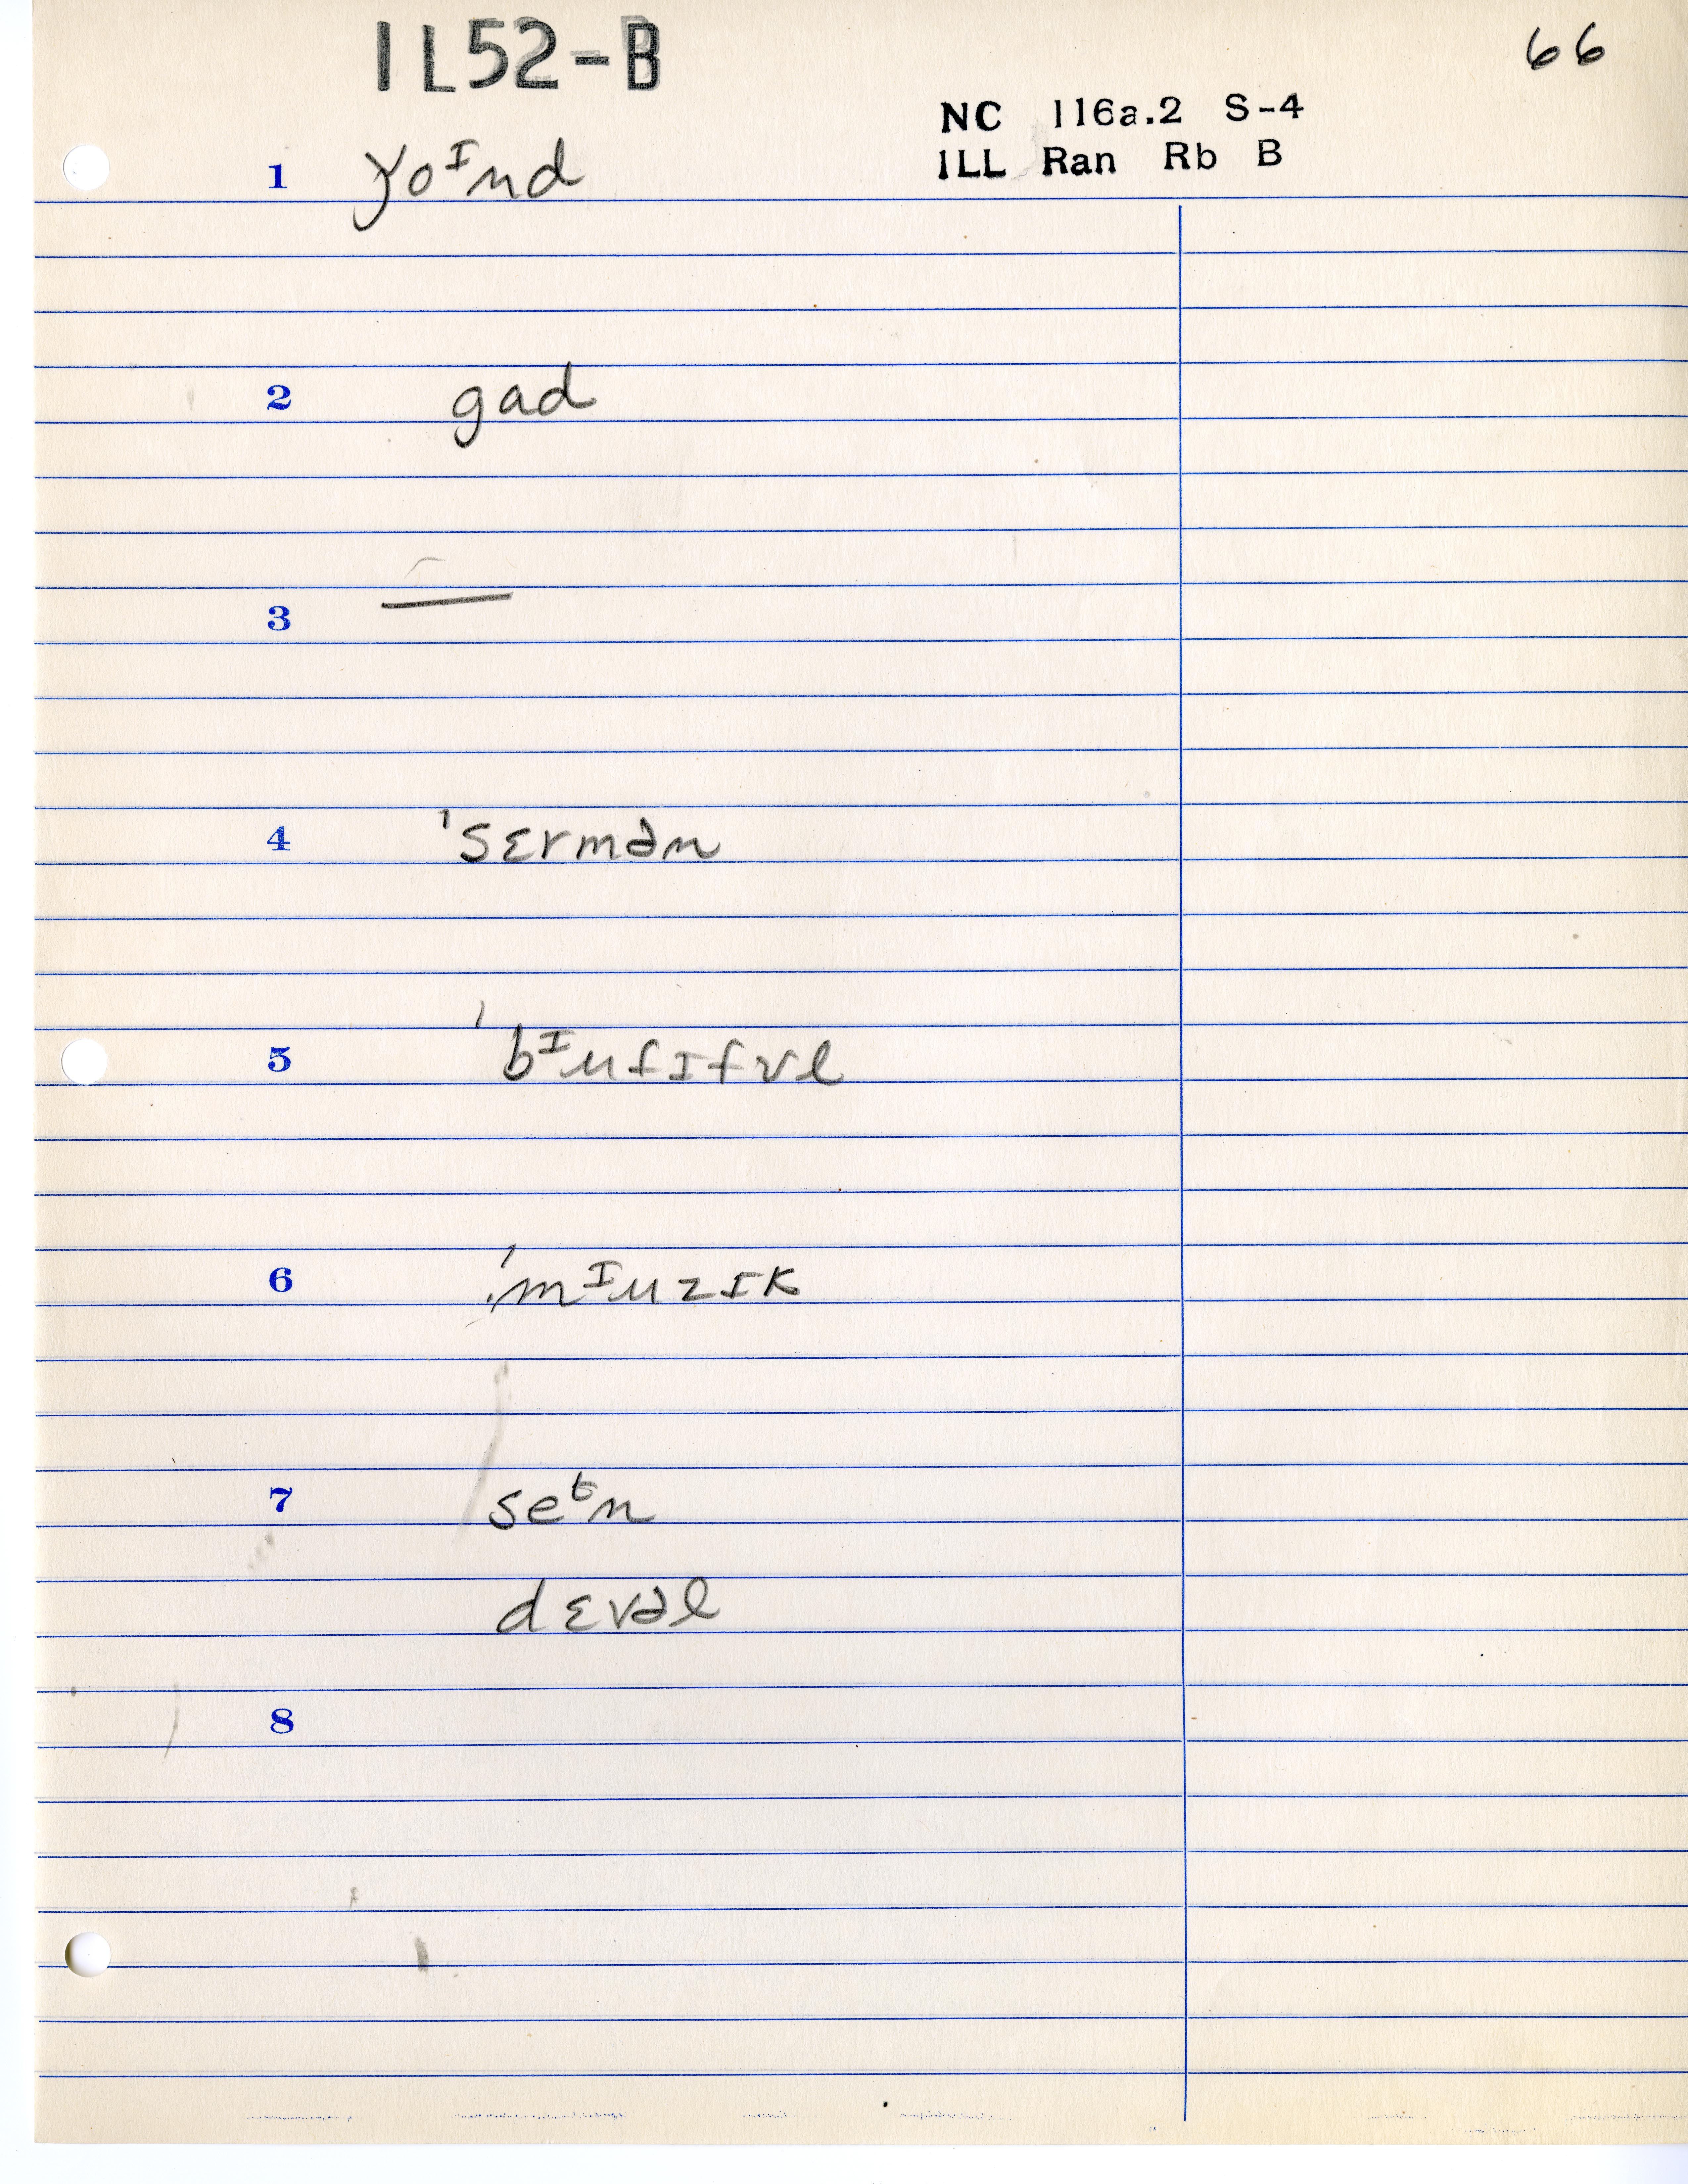 IL52-B
66
NC 116a.2 S-4
ILL Ran Rb B
1 yoᴵnd
2 gad
3 —
4 ˈsɛrmən
5 ˈbᴵufɪfʊl
6 ˈmᴵuzɪk
7 seᵗn
dɛvəl
8